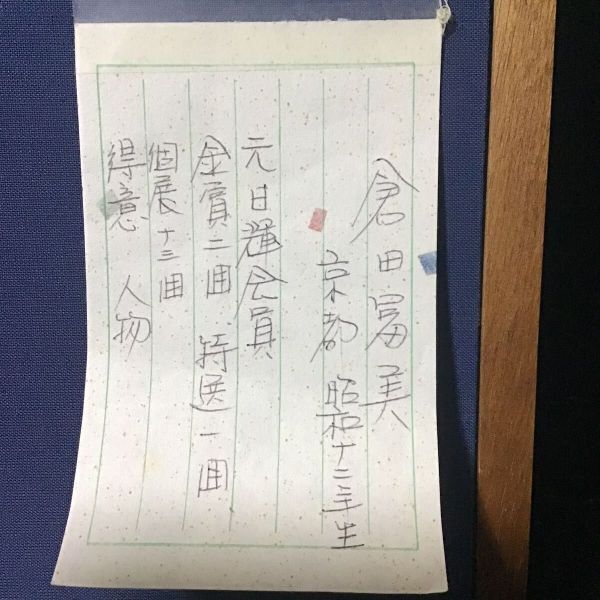 倉田冨美
京都 昭和十二年生
元日輝会員
金賞二回 特選一回
個展十三回
得意 人物